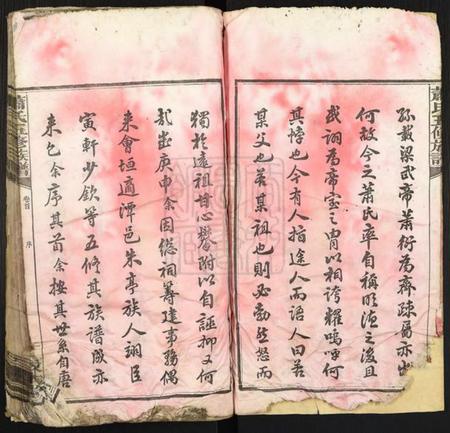 蕭氏五修族譜
孫載梁武帝蕭衍為齊疎屬亦出
何故今之蕭氏率自稱昭德之後且
或詡為帝室之冑以相誇耀嗚呼何
其悖也今有人指途人而語人曰若
某父也若某祖也則必勃然怒而
獨於遠祖甘心攀附以自誣抑又何
哉歲庚申余因總祠籌建事務偶
來會垣適潭邑朱亭族人翊臣
寅軒少欽等五修其族譜成亦
來乞余序其首余按其世系自唐
蕭氏五修族譜
卷首
序